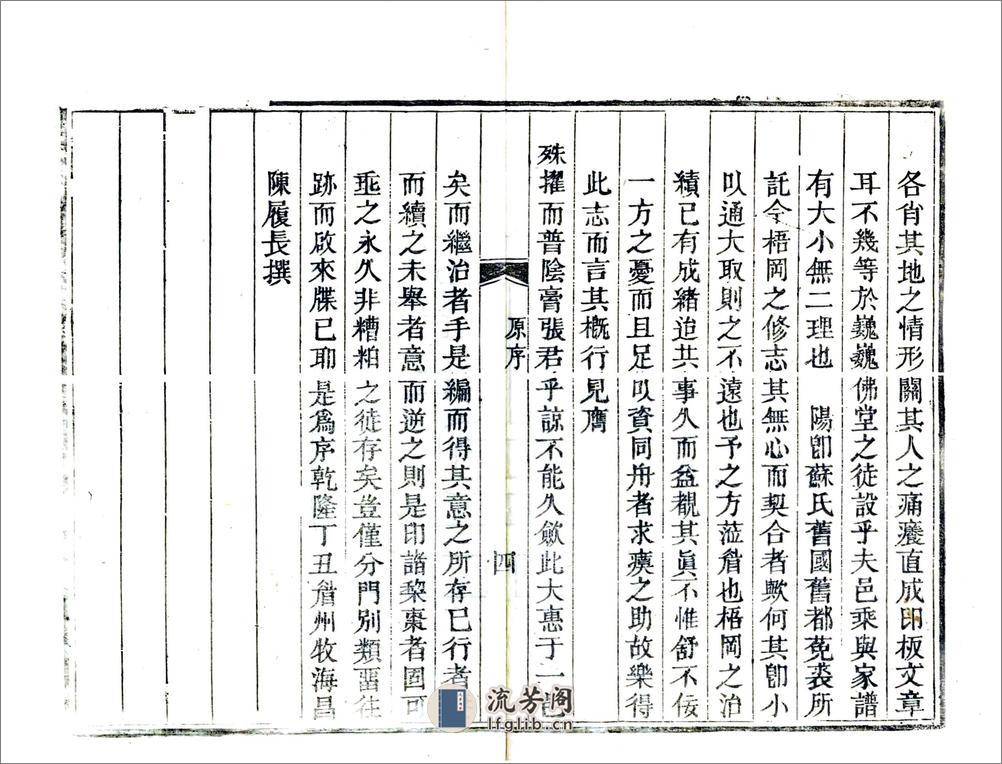 各肖其地之情形關其人之痛癢直成印板文章
耳不幾等於巍巍佛堂之徒設乎夫邑乘與家譜
有大小無二理也 陽卽蘇氏舊國舊都菟裘所
託今梧岡之修志其無心而契合者歟何其卽小
以通大取則之不遠也予之方蒞眉也梧岡之治
績已有成緒迨共事久而益覩其眞不惟舒不佞
一方之憂而且足以資同舟者求瘼之助故樂得
此志而言其槪行見膺
殊擢而普陰膏張君乎諒不能久斂此大惠于一邑
原序
四
矣而繼治者手是編而得其意之所存已行者
而續之未舉者意而逆之則是印諧黎棗者固可
垂之永久非糟粕之徒存矣豈僅分門別類畱往
跡而啟來牒已耶是爲序乾隆丁丑眉州牧海昌
陳履長撰
流芳阁
lfglib.cn